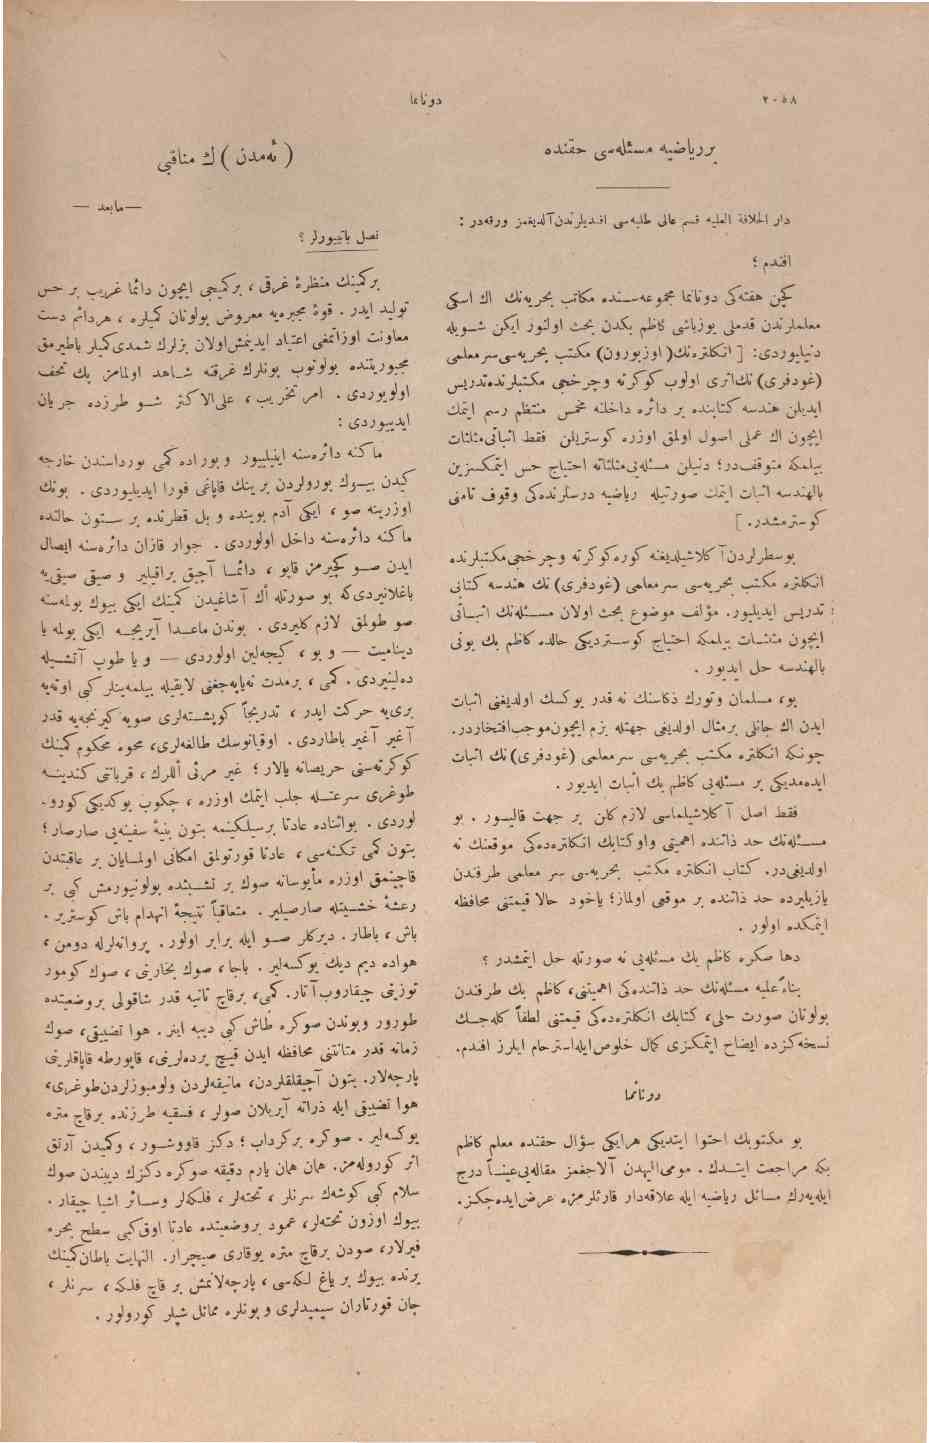 ٢٠٥٨
دونانما
بر رياضيه مسئله‌سى حقنده
دار الخلافة العليه قسم عالى طلبه‌سى افنديلرندن آلديغمز ورقه‌در :
افندم ؛
كچن هفته‌كى دونانما مجموعه‌سنده مكاتب بحريه‌نك اك اسكى
معلملرندن قدملى يوزباشى كاظم بكدن بحث اولنور ايكن شويله
دنيليوردى : [ انكلتره‌نك ( اوزبورون ) مكتب بحريه‌سى سرمعلمى
(غودفرى) نك‌اثرى اولوب كوكرته وچرخجى مكتبلرنده‌تدريس
ايديلن هندسه كتابنده بر دائره داخلنه مخمس منتظم رسم ايتمك
ايچون اك عملى اصول اولمق اوزره كوستريلن فقط اثباتى‌مثلثات
بيلمكه متوقفدر؛ دنيلن مسئله‌يى‌مثلثاته احتياج حس ايتمكسزين
بالهندسه اثبات ايتمك صورتيله رياضيه درسلرنده‌كى وقوف تامنى
كوسترمشدر. ]
بوسطرلردن آ كلاشيلديغنه كوره‌كوكرته وچرخجى‌مكتبلرنده
انكلتره مكتب بحريه‌سى سرمعلمى (غودفرى) نك هندسه كتابى
تدريس ايديليور. مؤلف موضوع بحث اولان مسئله‌نك اثباتى
ايچون مثلثات بيلمكه احتياج كوستردیكى حالده كاظم بك بونى
بالهندسه حل ايديور .
بو، مسلمان وتورك ذكاسنك نه قدر يوكسك اولديغنى اثبات
ايدن اك جانلى برمثال اولديغى جهتله بزم ايچون‌موجب‌افتخاردر.
چونكه انكلتره مكتب بحريه‌سى سرمعلمى (غودفرى) نك اثبات
ايده‌مديكى بر مسئله‌يى كاظم بك اثبات ايديور .
فقط اصل آ كلاشيلماسى لازم كلن بر جهت قاليور . بو
مسئله‌نك حد ذاتنده اهميتى واوكتابك انكلتره‌ده‌كى موقعنك نه
اولديغى‌در. كتاب انكلتره مكتب بحريه‌سى سر معلمى طرفندن
يازيليرده حد ذاتنده بر موقعى اولماز؛ ياخود حالا قيمتنى محافظه
ايتمكده اولور .
دها صكره كاظم بك مسئله‌يى نه صورتله حل ايتمشدر ؟
بناءً عليه مسئله‌نك حد ذاتنده‌كى اهميتنى، كاظم بك طرفندن
بولونان صورت حلى، كتابك انكلتره‌ده‌كى قيمتنى لطفاً كله‌جك
نسخه‌كزده ايضاح ايتمكزى كمال خلوص‌ايله‌استرحام ايلرز افندم.
دونانما
بو مكتوبك احتوا ايتديكى هرايكى سؤال حقنده معلم كاظم
بكه مراجعت ايتدك . مومى‌اليه‌دن آلاجغمز مقاله‌يى‌عيناً درج
ايله‌يه‌رك مسائل رياضيه ايله علاقه‌دار قارئلرمزه عرض‌ايده‌جكز.
( ئه‌مدن ) ك مناقبى
— مابعد —
نصل باتييورلر ؟
بركمينك منظرهٔ غرقى ، بركميجى ايچون دائما غريب بر حس
توليد ايدر . قوهٔ مجبره‌يه معروض بولونان كميلره ، هردائم دست
معاونت اوزاتمغى اعتياد ايدينمش‌اولان بزلرك شمدى‌كميلر باطيرمق
مجبوريتنده بولونوب بونلرك غرقنه شاهد اولمامز پك تحف
اولويوردى . امر تخريب ، على‌الاكثر شو طرزده جريان
ايديیوردى :
ماكنه دائره‌سنه اينيلييور وبوراده كمى بورداسندن خارجه
كيدن بيوك بورولردن برينك قاپاغى فورا ايديليوردى . بونك
اوزرينه صو ، ايكى آدم بوينده و بل قطرنده بر ستون حالنده
ماكنه دائره‌سنه داخل اولوردى . جوار قازان دائره‌سنه ايصال
ايدن صو كچيرمز قاپو ، دائما آچيق براقيلير و صيقى صيقى‌يه
باغلانيردى كه بو صورتله اك آشاغيدن كمينك ايكى بيوك بولمه‌سنه
صو طولمق لازم كليردى . بوندن ماعدا آيريجه ايكى بولمه يا
ديناميت — و بو ، كيجه‌لين اولوردى — و يا طوپ آتشيله
ده‌لينيردى . كمى ، برمدت نه‌ياپه‌جغنى لايقيله بيلمه‌ينلر كبى اوته‌يه
برى‌يه حركت ايدر ، تدريجاً كوپشته‌لرى صويه كيرنجه‌يه قدر
آغير آغير باطاردى . اوقيانوسك طالغه‌لرى، محوه محكوم كمينك
كوكرته‌سنى حريصانه يالار ؛ غير مرئى اللرك ، قربانى كندينه
طوغرى سرعتله جلب ايتمك اوزره ، چكوب بوكديكى كورو-
لوردى . بواثناده عادتا برسيلكينمه بتون بنيهٔ سفينه‌يى صارصار ؛
بتون كمى تكنه‌سى ، عادتا قورتولمق امكانى اولمايان بر عاقبتدن
قاچينمق اوزره مأيوسانه صوك بر تشبثده بولونيورمش كبى بر
رعشهٔ خشيتله صارصيلير . متعاقباً نتيجهٔ انهدام باش كوسترير .
باش ، باطار . ديركلر صو ايله برابر اولور . پروانه‌لرله دومن ،
هواده ديم ديك يوكسه‌لير . باجا ، صوك بخارينى ، صوك كومور
توزينى چيقاروب آتار. كمى، برقاچ ثانيه قدر شاقولى بروضعيتده
طورور وبوندن صوكره طاش كبى ديبه اينر . هوا تضييقى، صوك
زمانه قدر متانتنى محافظه ايدن قيچ پرده‌لرينى، قاپورطه قاپاقلرينى
پارچه‌لار. بتون آچيقلقلردن، مانيقه‌لردن ولومبوزلردن‌طوغرى،
هوا تضييقى ايله ذراته آيريلان صولر ، فسقيه طرزنده برقاچ متره
يوكسه‌لير . صوكره بركرداب ؛ دكز قاووشور ، وكميدن آرتق
اثر كورولمه‌مز. همان همان يارم دقيقه صوكره دكزك ديبندن صوك
سلام كبى كوشه‌ك سرنلر ، تخته‌لر ، فلكه‌لر وسائر اشيا چيقار .
بيوك اوزون تخته‌لر، عمود بروضعيتده عادتا اوق كبى سطح بحره
فيرلار، صودن برقاچ متره يوقارى صيچرار. النهايت باطان كمينك
يرنده بيوك بر ياغ لكه‌سى ، پارچه‌لانمش بر قاچ فلكه ، سرنلر ،
جان قورتاران سيميدلرى و بونلره مماثل شيلر كورولور .